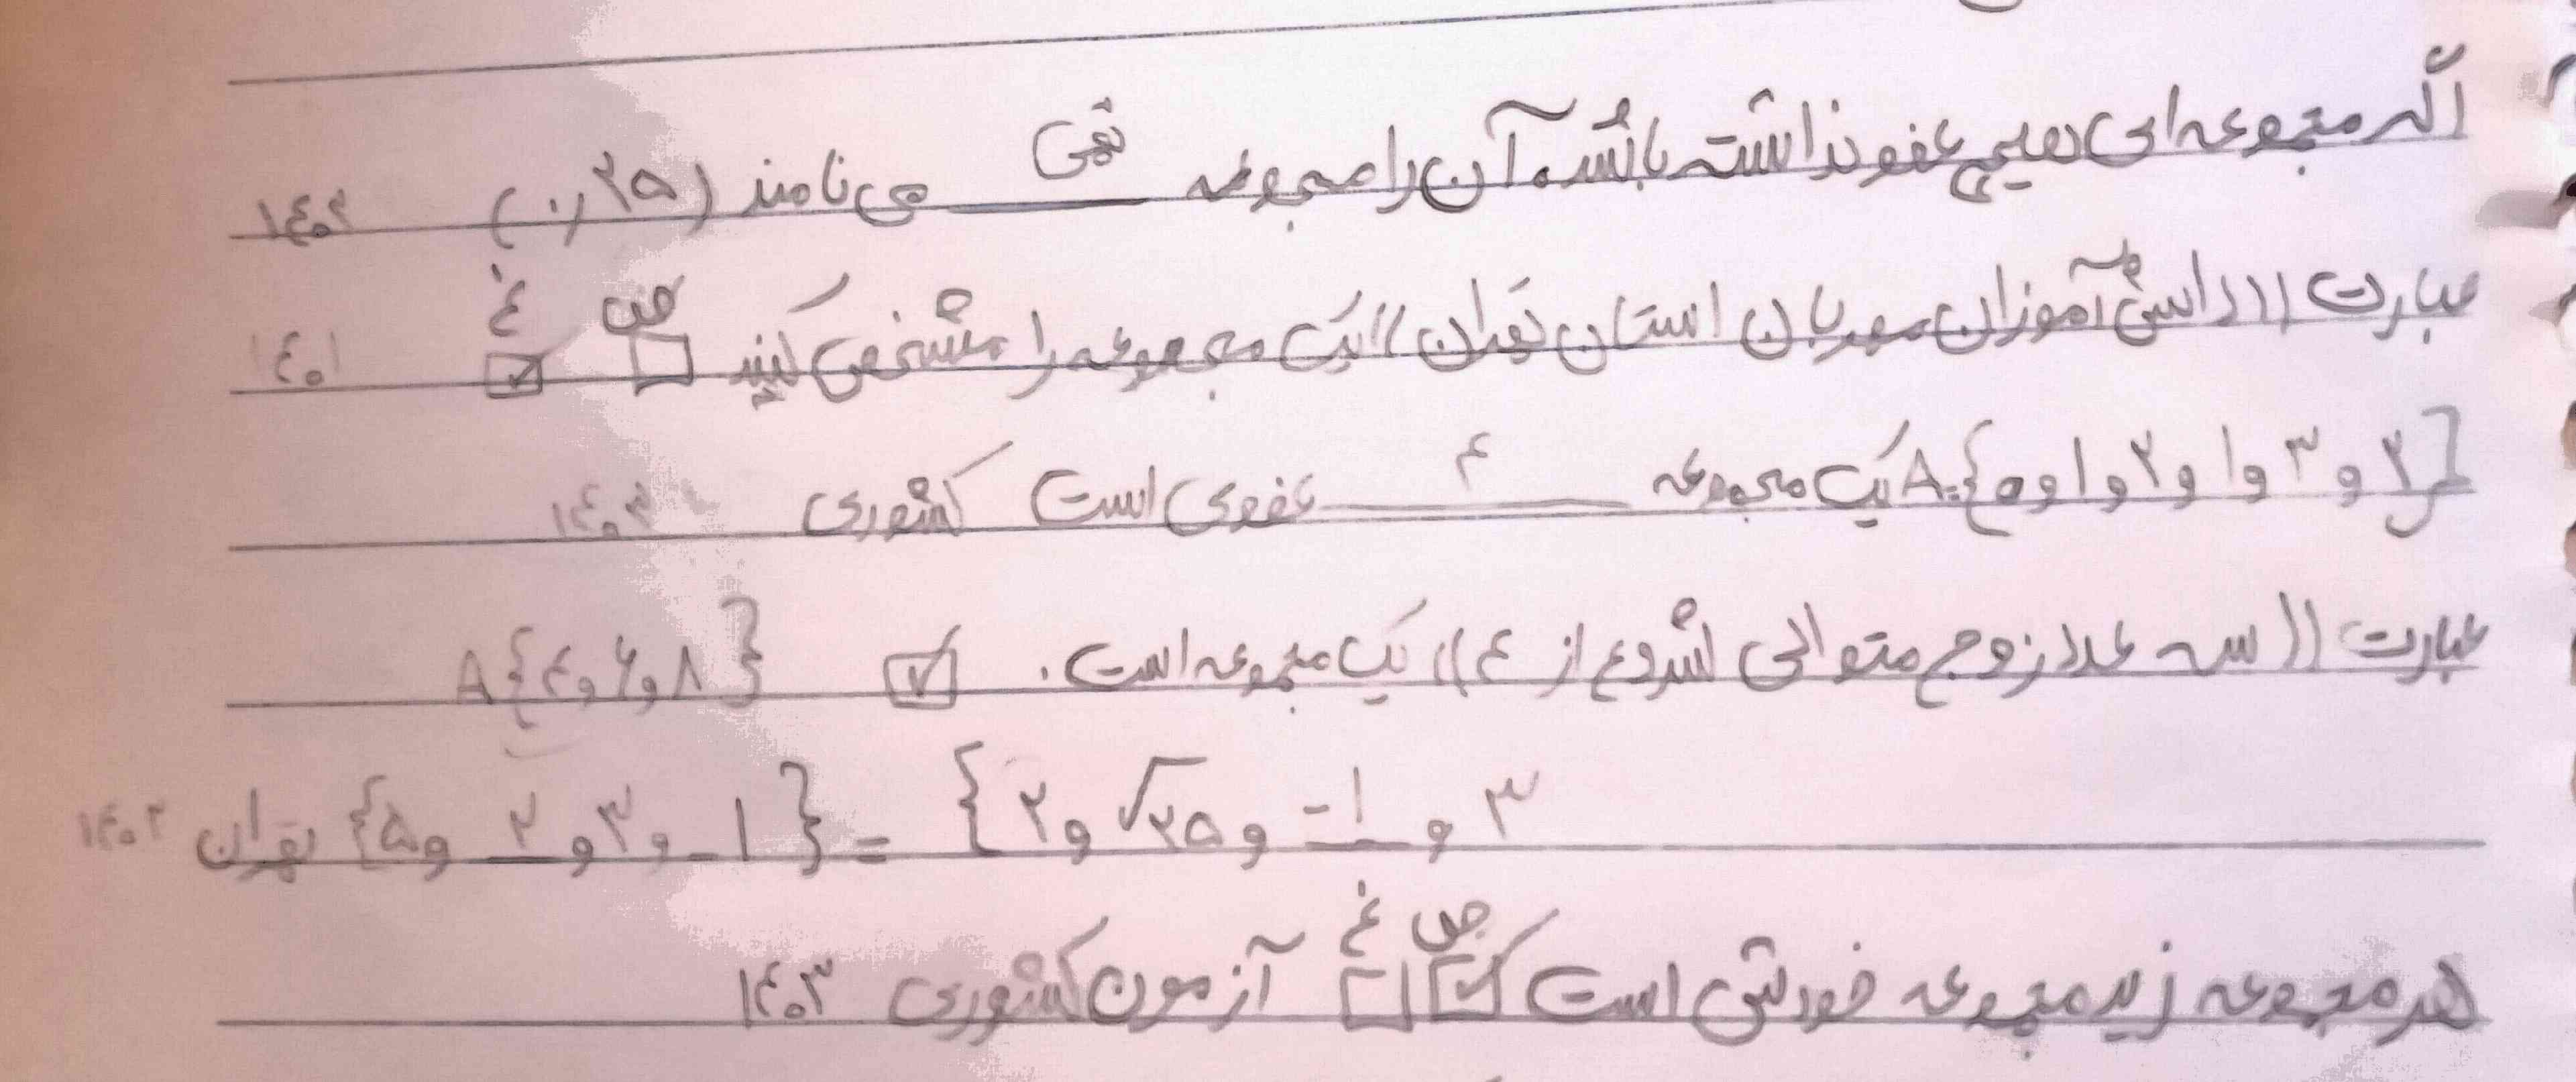 اگر مجموعه ای هیچ عضو نداشته باشد آن را مجموعه تهی می نامند (۰,۲۵) ۱۴۰۲
عبارت ((دانش آموزان مهربان استان تهران)) یک مجموعه را مشخص می کنند ص □ غ ☑ ۱۴۰۱
A={۲ و ۳ و ۱ و ۲ و ۱ و ۰} یک مجموعه ۴ عضوی است کشوری ۱۴۰۳
عبارت ((سه عدد زوج متوالی شروع از ۴)) یک مجموعه است. ☑ A{۴ و ۶ و ۸}
{۵ و ۲ و ۳ و -۱} = {۲ و √۲۵ و -۱ و ۳ تهران ۱۴۰۲
هر مجموعه زیر مجموعه خودش است ص ☑ غ □ آزمون کشوری ۱۴۰۳